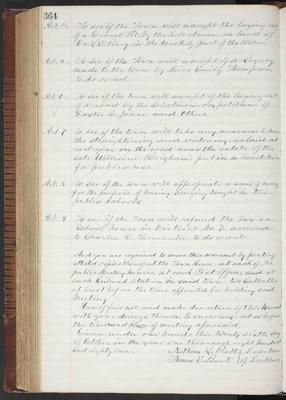 364
Art. 4. To see if the Town will accept the laying out
of a Gravel Pit, by the Selectmen on land of
in the Westerly part of the town.
Art. 5. To see if the Town will accept of a Legacy
made to the town by Miss Emily Thompson
to do or act.
Art. 6. To see if the town will accept of the laying out
of a road by the Selectmen on petition of
Jones and others
Art. 7. To see if the town will take any measures to have
the straightening and widening as laid out
last year on the road near the estate of the
late William Brigham put in a condition
for public use.
Art. 8. To see if the town will appropriate a sum of money
for the purpose of having Singing taught in the
public Schools
Art. 9. To see if the Town will refund the Tax on
School house in District No. 7. assessed
to Charles C. Parmenter to do or act.
And you are required to serve this warrant by posting
attested copies thereof at the Town House, at each of the
public Meeting houses, at each Post Office, and at
each Railroad Station in said town,
at least before the time appointed for holding said
Meeting.
Hereof fail not and make due return of this Warrant
with your doings thereon to ourselves, at or before
the time and place of meeting aforesaid.
Given under our hands this twenty sixth day
of October in the year one thousand eight hundred
and eighty one.
Nathan L. Pratt
Selectmen
of Sudbury